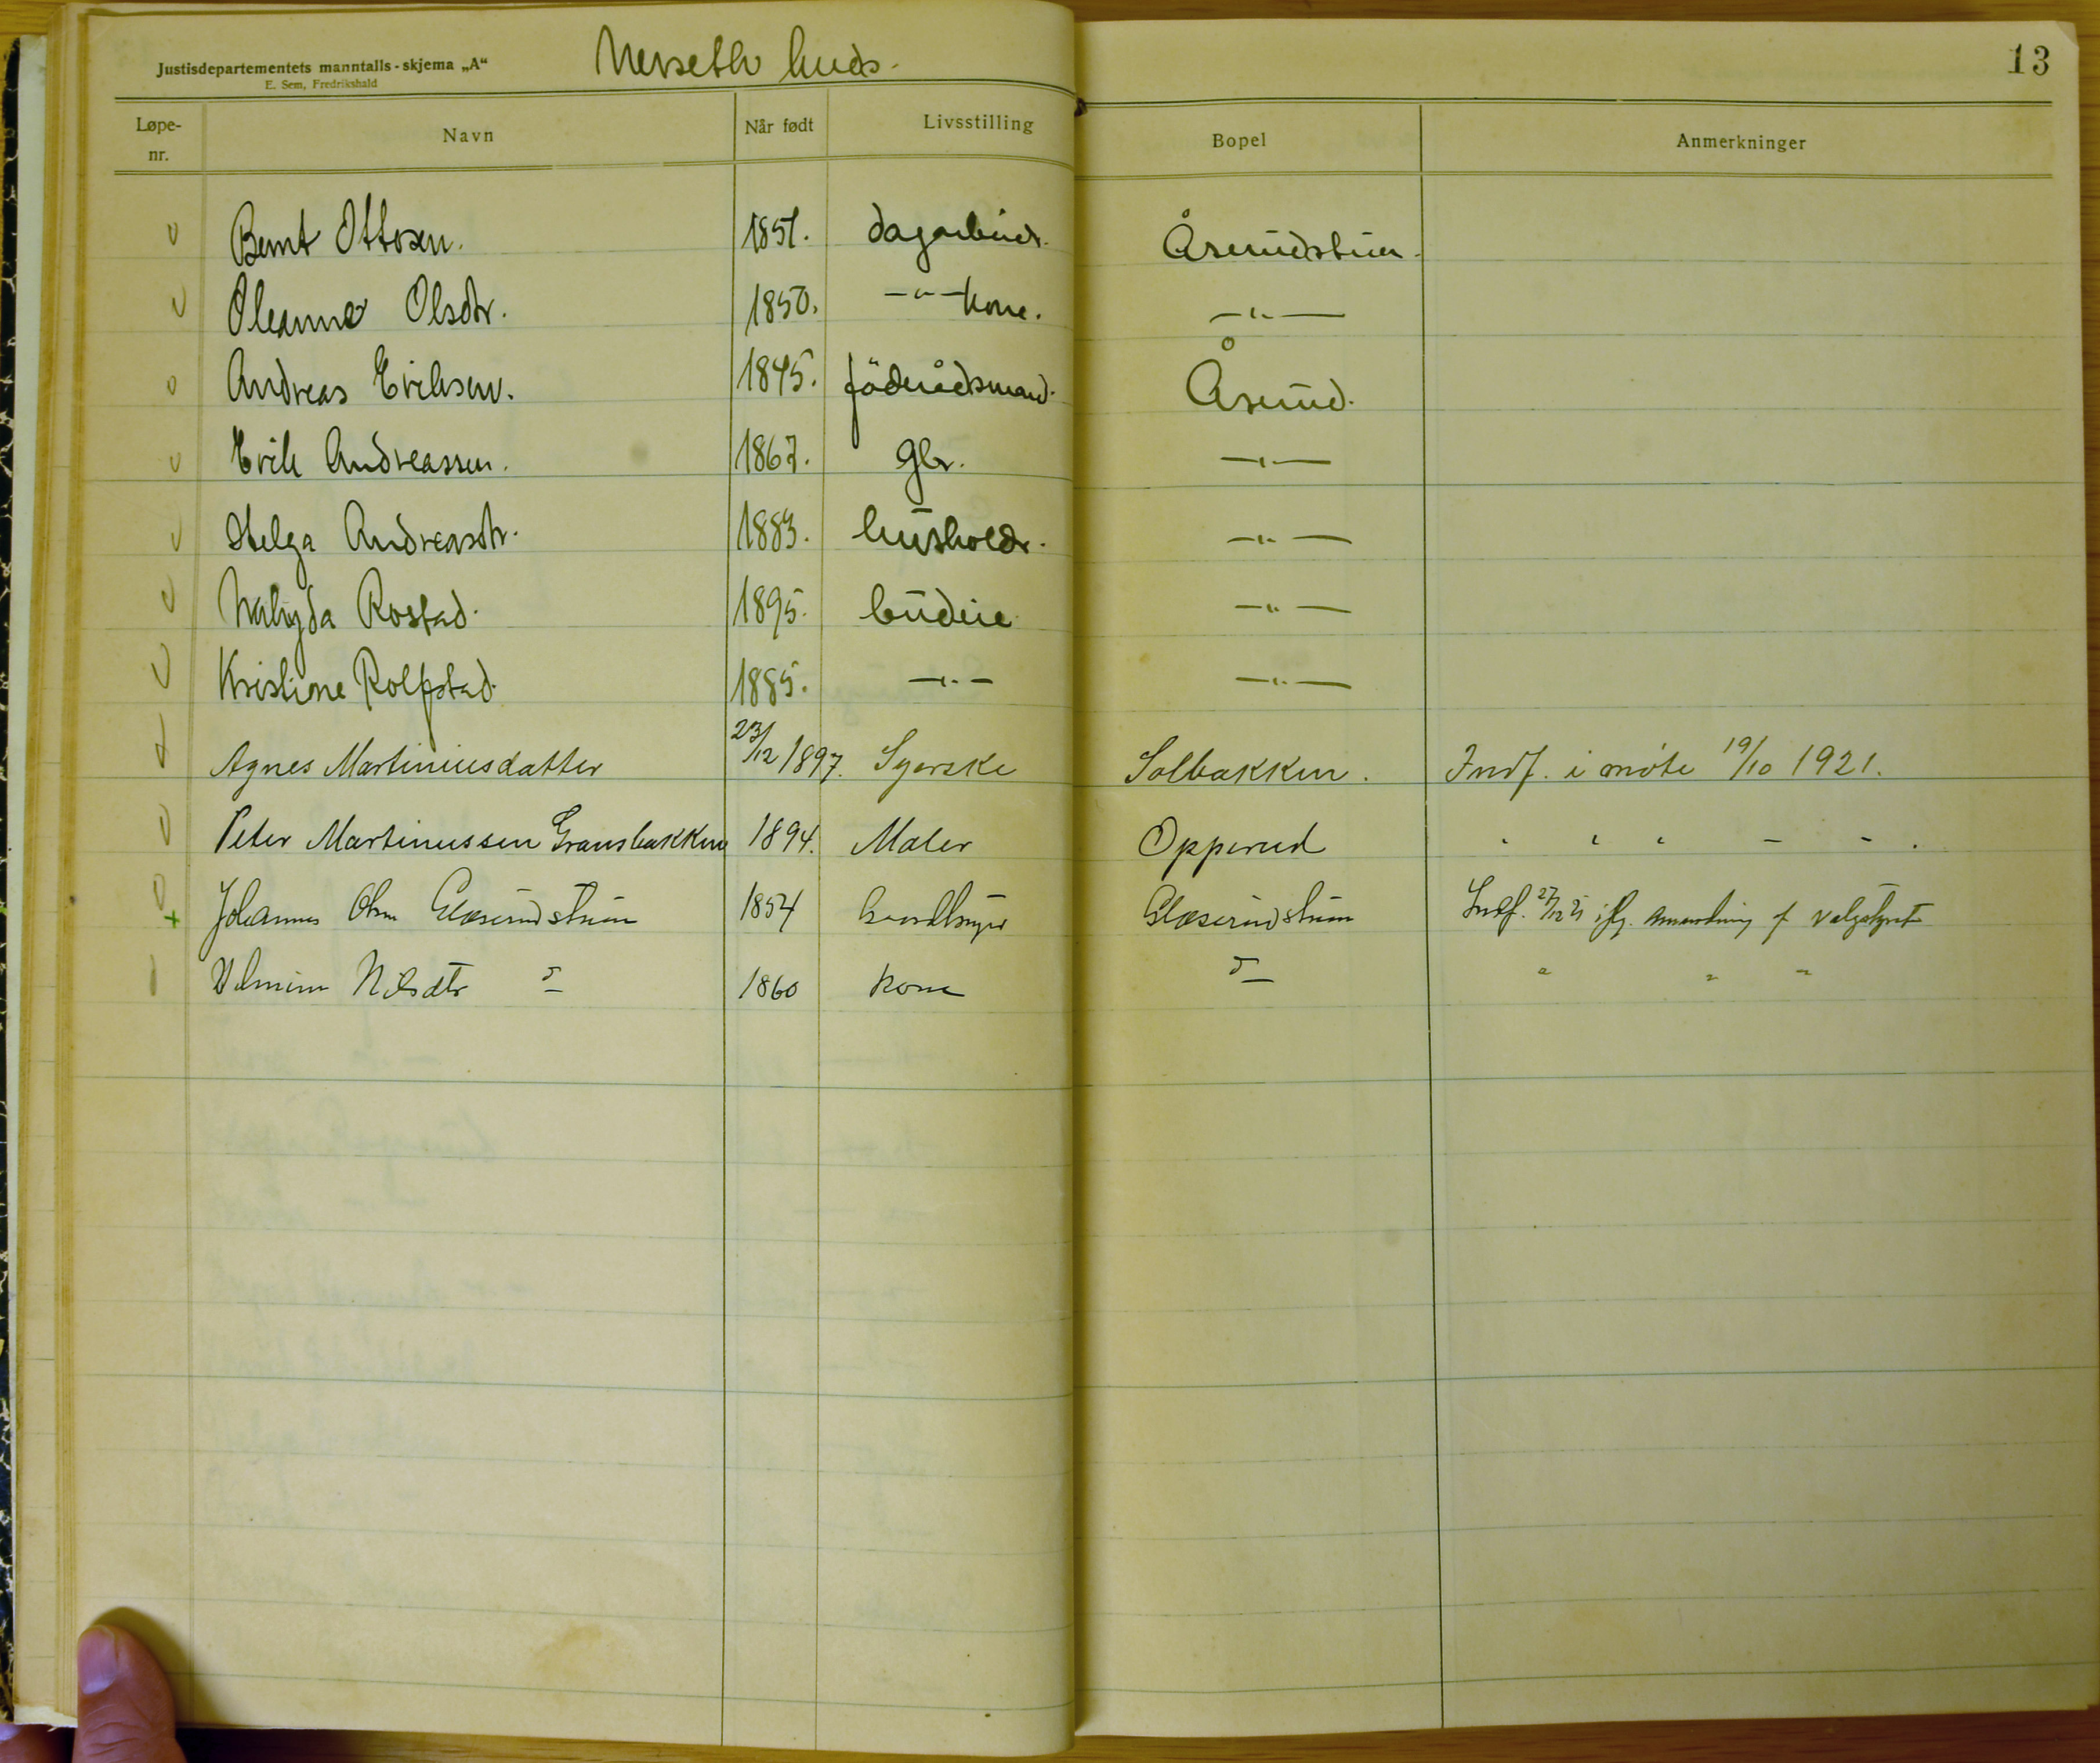 Justisdepartementets manntalls-skjema „A“
E. Sem, Fredrikshald
13
Løpe-nr. Navn Når født Livsstilling Bopel Anmerkninger
Bernt Ottosen. 1851. dagarbeider. Åserudstuen.
Oleanna Olsdtr. 1850. —"— kone. —"—
Andreas Eriksen. 1845. föderådsmand. Åserud.
Erik Andreassen. 1867. gbr. —"—
Helga Andreasdtr. 1883. husholdr. —"—
Rostad. 1895. budeie —"—
Kristine Rolfstad. 1885. —"— —"—
Agnes Martiniusdatter 23/12 1897. Syerske Solbakken. Indf. i möte 19/10 1921.
Peter Martinussen Gransbakken 1894. Maler Opperud " " " – – .
Johannes Olsen Glæserudstuen 1854 Glæserudstuen Indf. 27/12 21 ifg. Anmerkning f valgstyret
Nilsdtr do 1860 kone do " " "